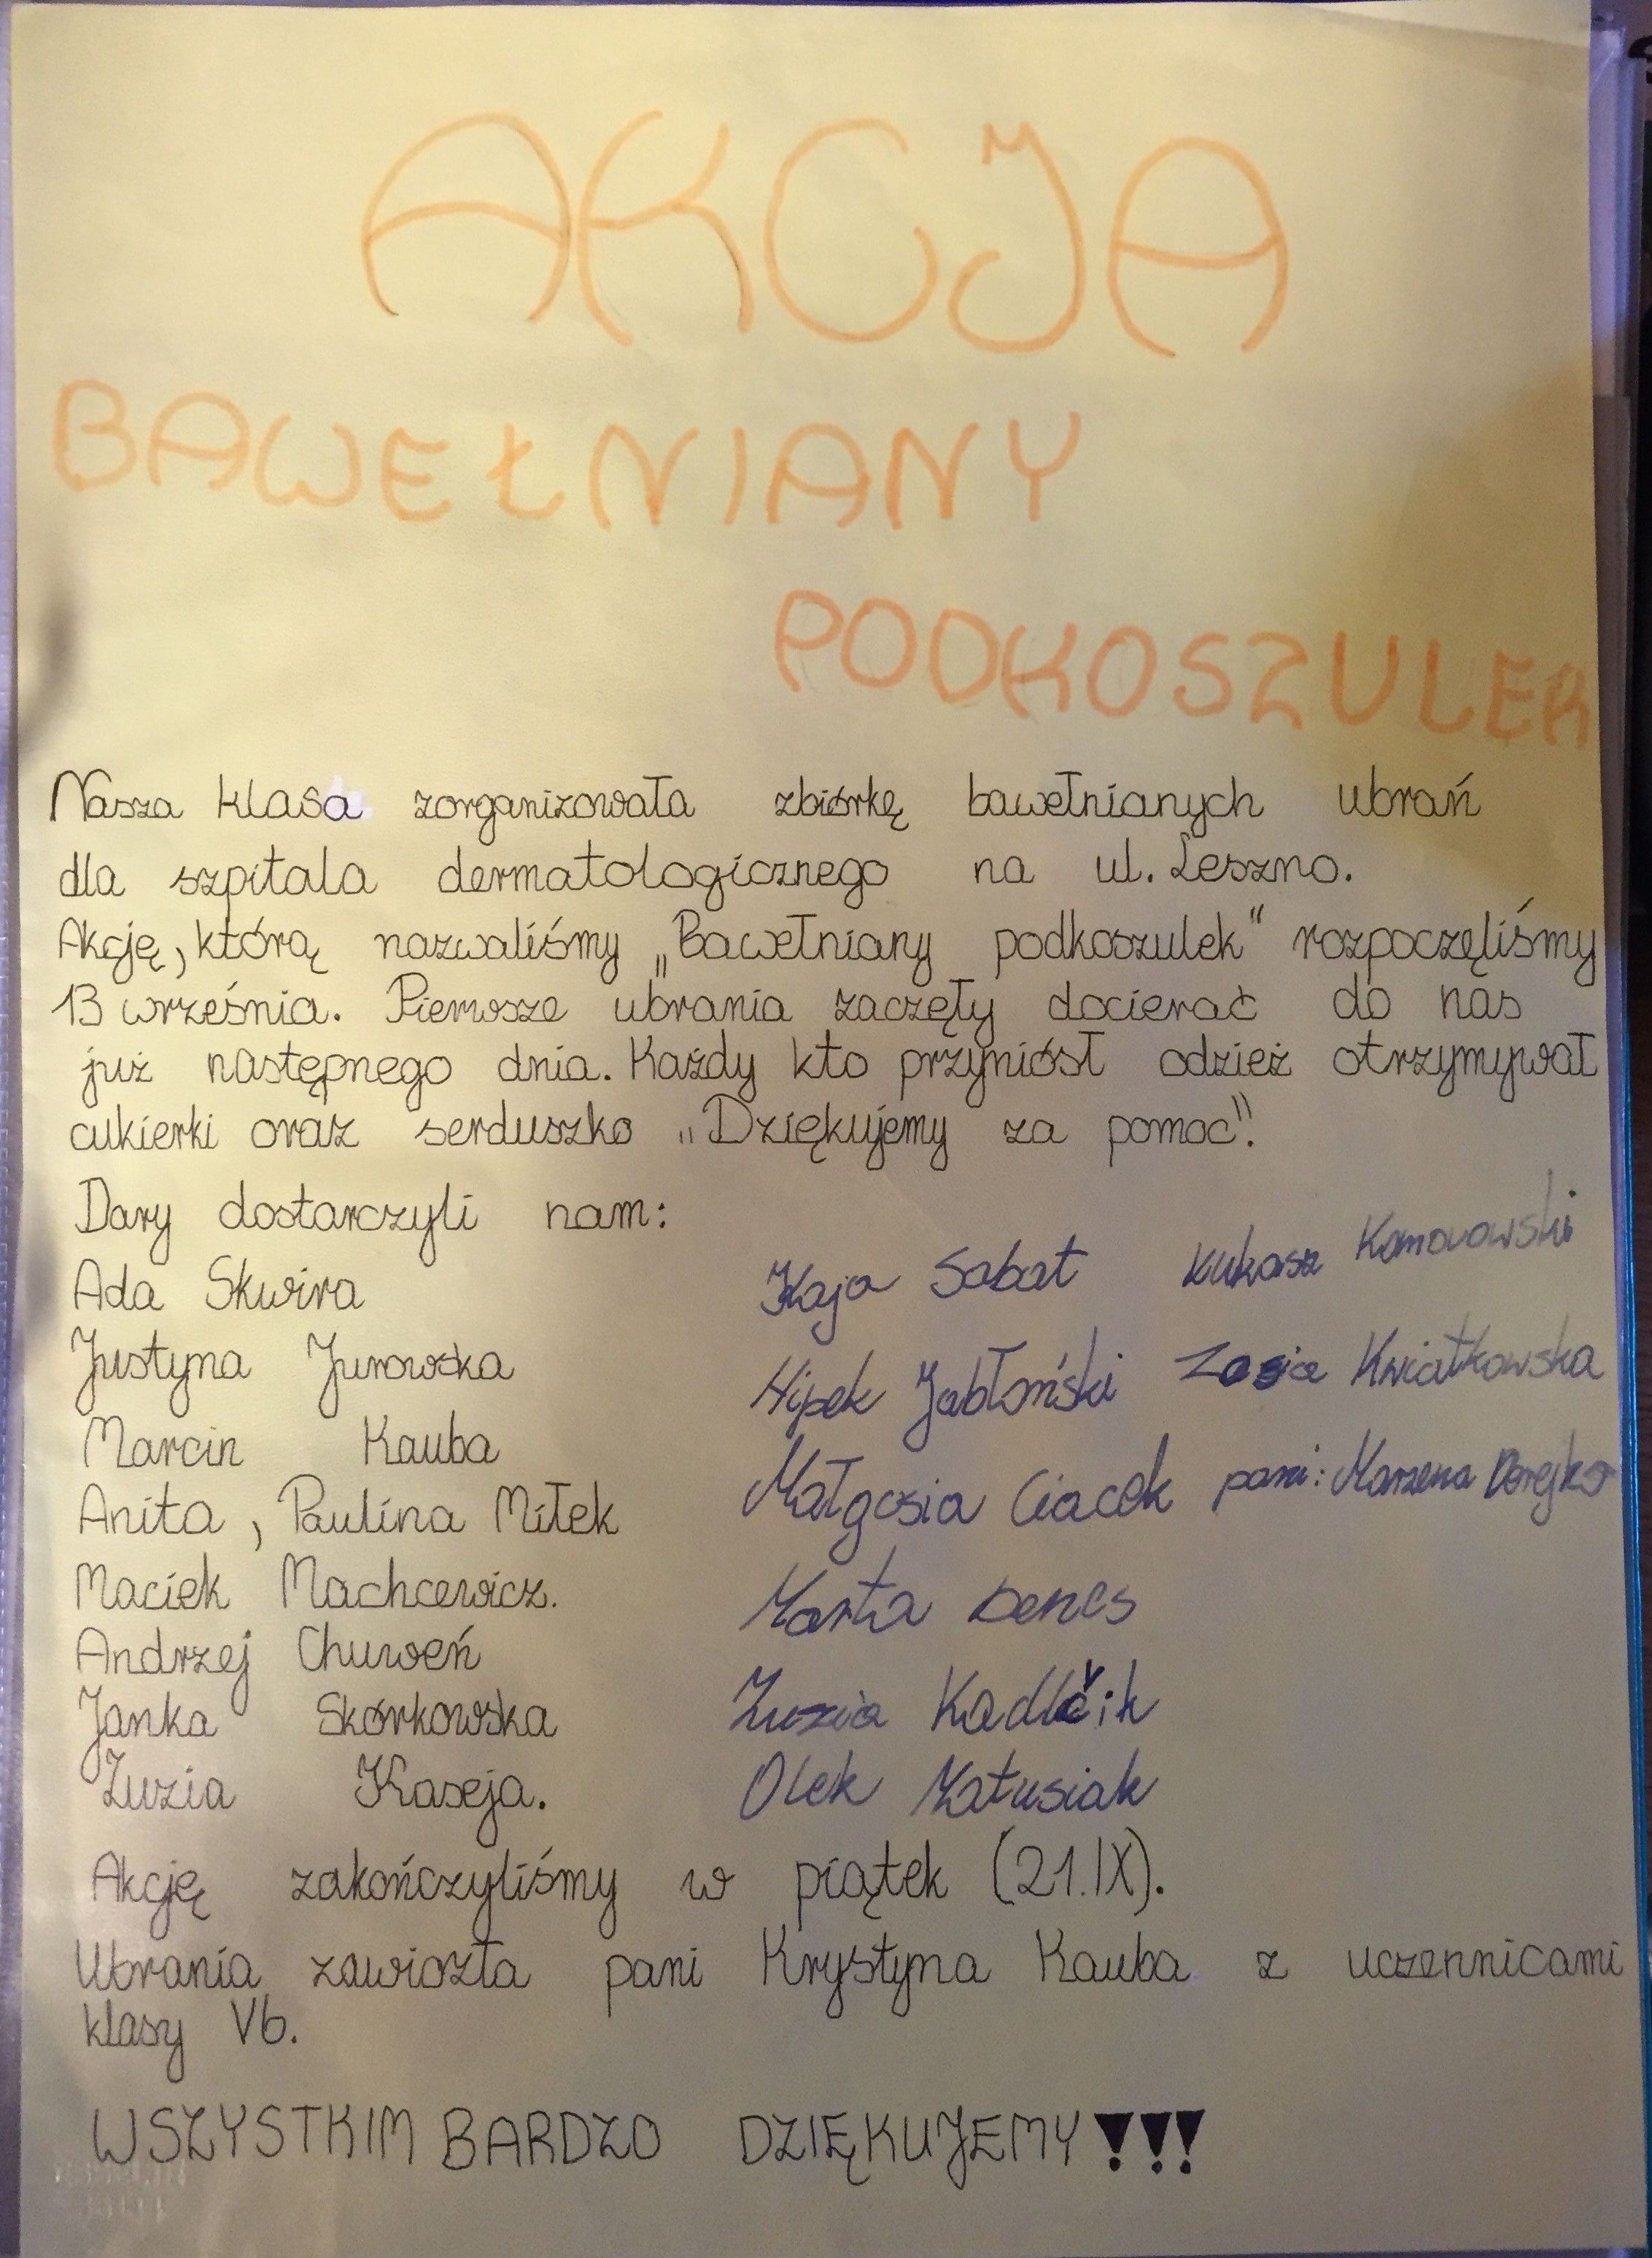 AKCJA
BAWEŁNIANY
PODKOSZULEK
Nasza klasa zorganizowała zbiórkę bawełnianych ubrań
dla szpitala dermatologicznego na ul. Leszno.
Akcję, którą nazwaliśmy „Bawełniany podkoszulek" rozpoczęliśmy
13 września. Pierwsze ubrania zaczęły docierać do nas
już następnego dnia. Każdy kto przyniósł odzież otrzymywał
cukierki oraz serduszko „Dziękujemy za pomoc".
Dary dostarczyli nam:
Ada Skwira
Justyna Jurowska
Marcin Kauba
Anita, Paulina Miłek
Maciek Machcewicz.
Andrzej Chuweń
Janka Skórkowska
Zuzia Kaseja.
Kaja Sabat
Hipek Jabłoński
Małgosia Ciacek
Marta Denes
Zuzia Kadlčik
Olek Matusiak
Łukasz Komorowski
Zosia Kwiatkowska
pani: Marzena Dorejko
Akcję zakończyliśmy w piątek (21.IX).
Ubrania zawiozła pani Krystyna Kauba z uczennicami
klasy Vb.
WSZYSTKIM BARDZO DZIĘKUJEMY!!!